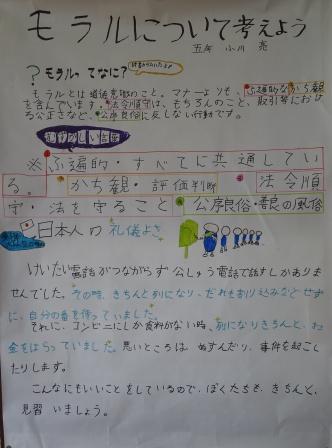 モラルについて考えよう
五年 小川 亮
?モラルってなに?
モラルとは道徳意識のこと。マナーよりも、ふ遍的なかち観
を含んでいます。法令順守は、もちろんのこと、取引等におけ
る公正さなど、公序良俗に反しない行動です。
むずかしい言葉
※ふ遍的・すべてに共通してい
る。かち観・評価判断 法令順
守・法を守ること 公序良俗・善良の風俗
日本人の礼儀よさ
けいたい電話がつながらず公しゅう電話で話すしかありま
せんでした。その時、きちんと列になり、だれも割り込みなどせず
に、自分の番を待っていました。
それに、コンビニにしか食料がない時、列になりきちんと、お
金をはらっていました。悪いところは、ぬすんだり、事件を起こし
たりします。
こんなにもいいことをしているので、ぼくたちも、きちんと、
見習いましょう。